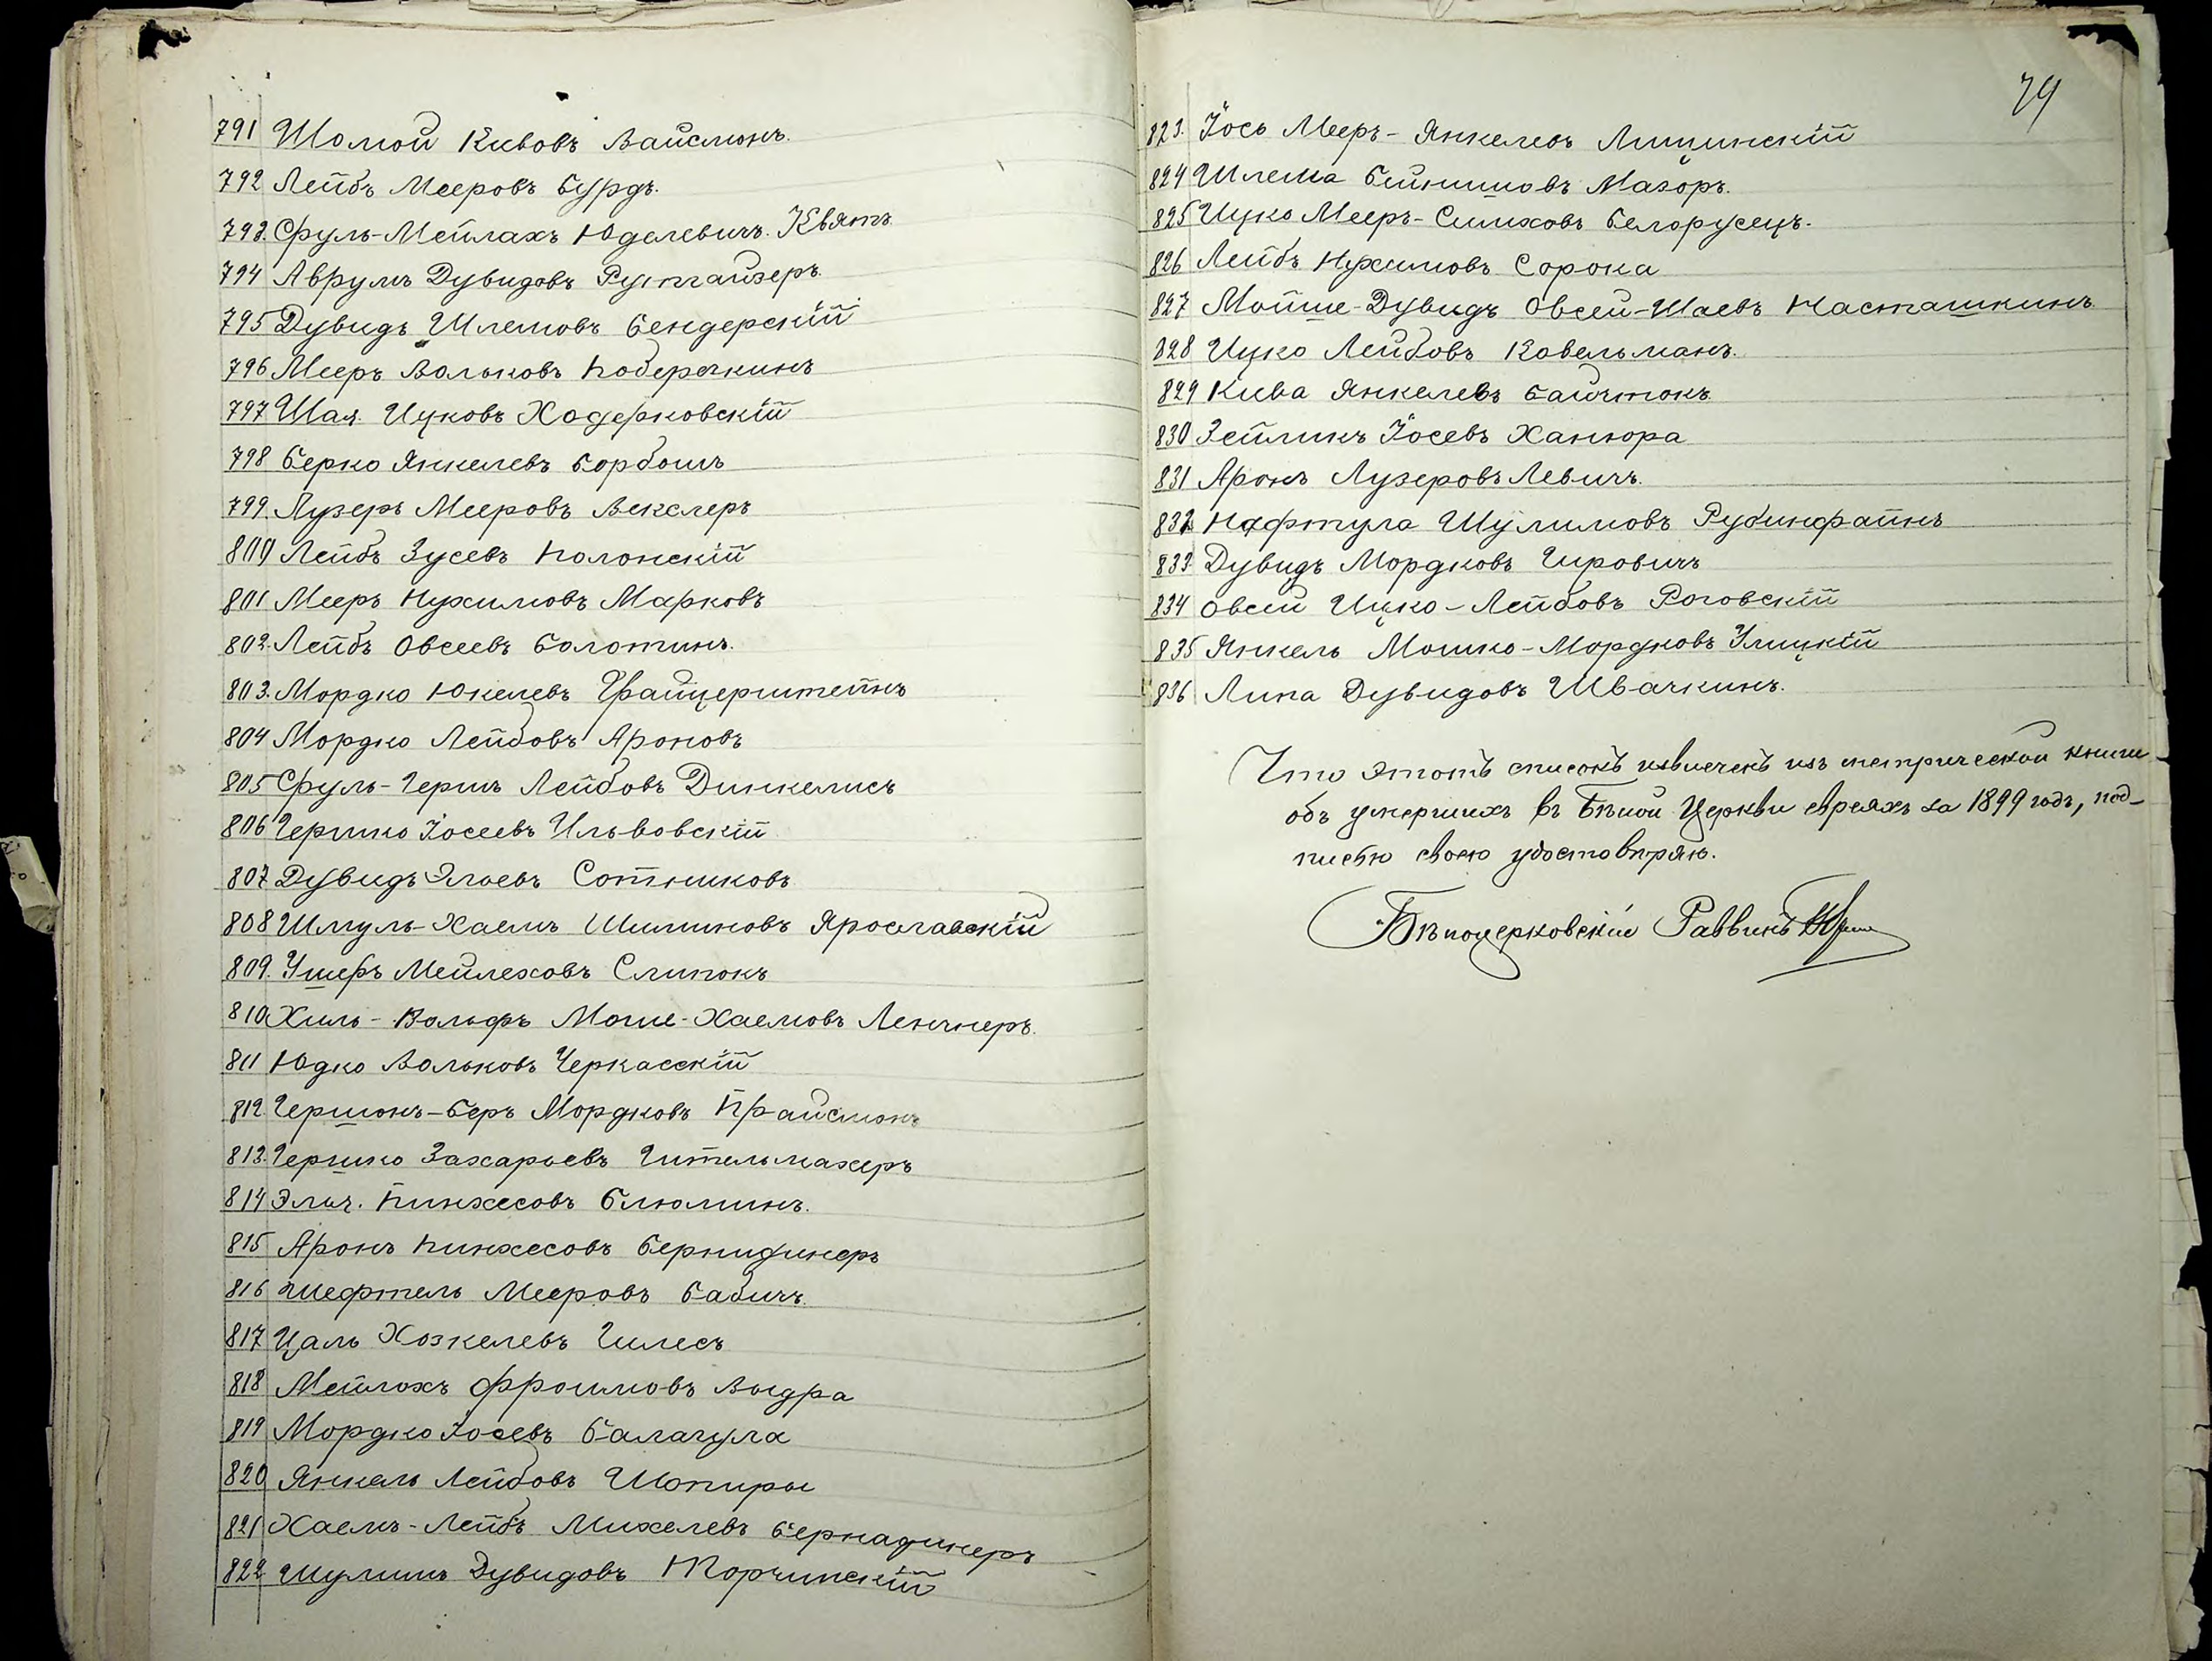 791 Шомой Кивовъ Вайсмонъ.
792 Лейбъ Мееровъ Бурдъ.
793. Сруль-Мейлахъ Юделевичъ. Квятъ
794 Аврумъ Дувидовъ Рутгайзеръ.
795 Дувидъ Шлемовъ Бендерскій
796 Мееръ Вольковъ Поберечкинъ
797 Шая. Ицковъ Ходерковскій
798 Берко Янкелевъ Борбошъ
799. Лузеръ Мееровъ Векслеръ
800 Лейбъ Зусевъ Полонскій
801 Мееръ Нухимовъ Марковъ
802. Лейбъ Овсеевъ Болотинъ.
803. Мордко Юкелевъ Грайцерштейнъ
804 Мордко Лейбовъ Ароновъ
805 Сруль-Гершъ Лейбовъ Динкелисъ
806 Гершко Іосеевъ Ильвовскій
807 Дувидъ Эльевъ Сотниковъ
808 Шмуль-Хаемъ Шиминовъ Ярославскій
809. Ушеръ Мейлеховъ Слипокъ
810 Хиль-Вольфъ Моше-Хаемовъ Ленчнеръ.
811 Юдко Вольковъ Черкасскій
812 Гершонъ-Беръ Мордковъ Прайсмонъ
813. Гершко Захарьевъ Гительмахеръ
814 Элья. Пинхесовъ Блюминъ.
815 Аронъ Пинхесовъ Бернидинеръ
816 Шефтель Мееровъ Бабичъ.
817 Цаль Хозкелевъ Гилесъ
818 Мейлохъ Фроимовъ Выдра
819 Мордко Іосевъ Балагула
820 Янкель Лейбовъ Шопиры
821 Хаемъ-Лейбъ Михелевъ Бернадинеръ
822 Шулимъ Дувидовъ Торчинскій
79
823. Іось Мееръ-Янкелевъ Лищинскій
824 Шлема Бейнишовъ Мазоръ.
825 Ицко Мееръ-Симховъ Белорусецъ.
826 Лейбъ Нухимовъ Сорока
827 Мойше-Дувидъ Овсей-Шаевъ Насташкинъ
828 Ицко Лейбовъ Ковельманъ.
829 Кива Янкелевъ Байчтокъ.
830 Зейликъ Іосевъ Ханюра
831 Аронъ Лузеровъ Левичъ.
832 Нафтула Шулимовъ Рубинфайнъ
833. Дувидъ Мордковъ Гировичъ
834 Овсей Ицко-Лейбовъ Роговскій
835 Янкель Мошко-Мордковъ Улицкій
836 Липа Дувидовъ Швачкинъ.
Что этотъ списокъ извлеченъ изъ метрической книги
объ умершихъ въ Бѣлой Церкви евреяхъ за 1899 годъ, под-
писью своею удостовѣряю.
Бѣлоцерковскій Раввинъ